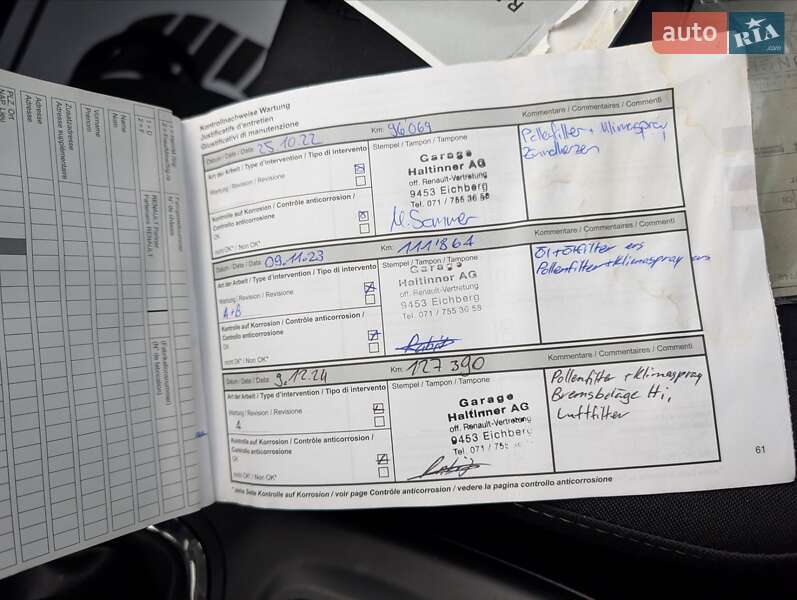 auto RIA .com
Kontrollnachweise Wartung
Justificatifs d'entretien
Giustificativi di manutenzione
Datum / Date / Data: 25.10.22 Km: 96069
Kommentare / Commentaires / Commenti
Art der Arbeit / Type d'intervention / Tipo di intervento
Wartung / Revision / Revisione
Kontrolle auf Korrosion / Contrôle anticorrosion /
Controllo anticorrosione
OK
nicht OK* / Non OK*
Stempel / Tampon / Tampone
Garage
Haltinner AG
off. Renault-Vertretung
9453 Eichberg
Tel. 071 / 755 36 58
Pollenfilter + Klimaspray
Zündkerzen
Datum / Date / Data: 09.11.23 Km: 111'861
Kommentare / Commentaires / Commenti
Art der Arbeit / Type d'intervention / Tipo di intervento
Wartung / Revision / Revisione
A+B
Kontrolle auf Korrosion / Contrôle anticorrosion /
Controllo anticorrosione
OK
nicht OK* / Non OK*
Stempel / Tampon / Tampone
Garage
Haltinner AG
off. Renault-Vertretung
9453 Eichberg
Tel. 071 / 755 36 58
Öl + Ölfilter ers
Pollenfilter + Klimaspray ers
Datum / Date / Data: 9.12.24 Km: 127390
Kommentare / Commentaires / Commenti
Art der Arbeit / Type d'intervention / Tipo di intervento
Wartung / Revision / Revisione
A
Kontrolle auf Korrosion / Contrôle anticorrosion /
Controllo anticorrosione
OK
nicht OK* / Non OK*
Stempel / Tampon / Tampone
Garage
Haltinner AG
off. Renault-Vertretung
9453 Eichberg
Tel. 071 / 755
Pollenfilter + Klimaspray
Bremsbeläge Hi,
Luftfilter
61
* siehe Seite Kontrolle auf Korrosion / voir page Contrôle anticorrosion / vedere la pagina controllo anticorrosione
PLZ, Ort
NAP, Lieu
Adresse
Adresse
Zusatzadresse
Adresse supplémentaire
Vorname
Prénom
Name
Nom
1 = D
2 = F
RENAULT Partner
Partenaire RENAULT
Fahrgestellnummer
N° de châssis
(Fabrikationsnummer)
(N° de fabrication)